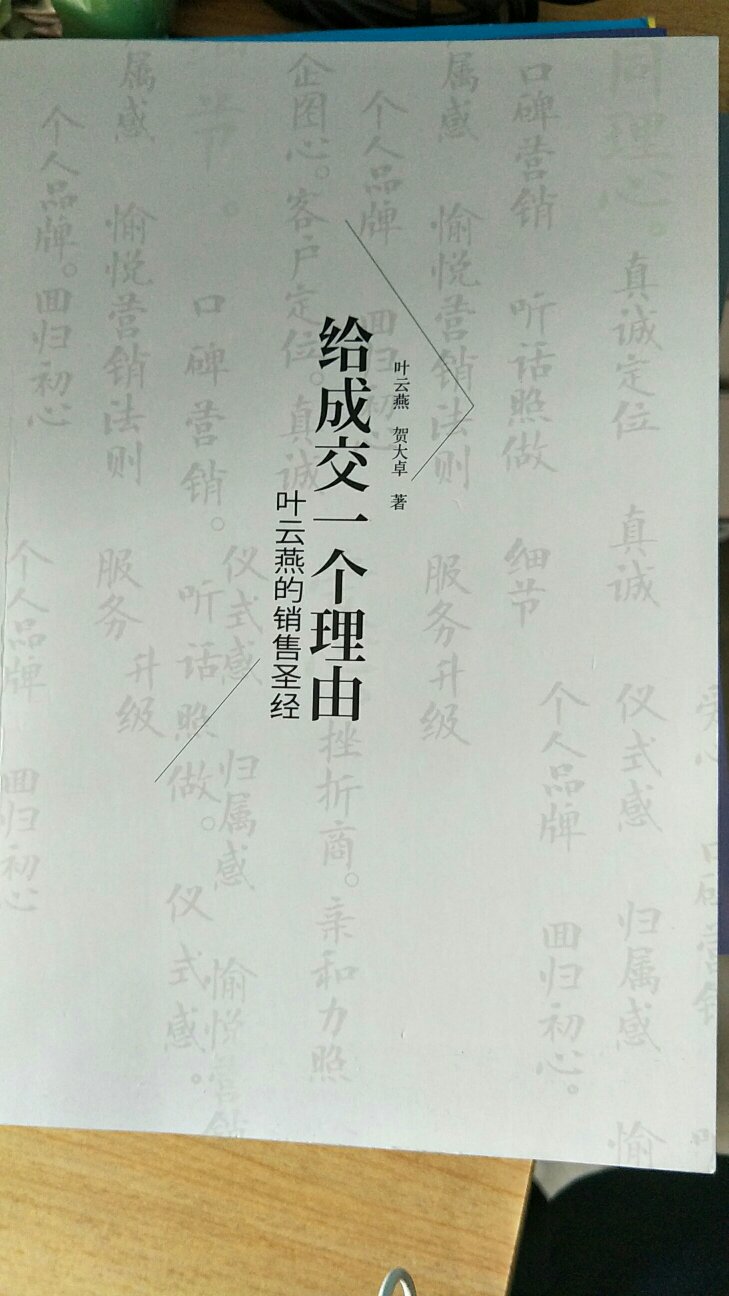 同理心。真诚定位 真诚 仪式感 归属感 愉
口碑营销 听话照做 细节 个人品牌 回归初心。
属感 愉悦营销法则 服务升级
叶云燕 贺大卓 著
个人品牌 回归初心
给成交一个理由
叶云燕的销售圣经
企图心。客户定位。真诚
挫折商。亲和力照
仪式感 归属感 愉悦营销
节。口碑营销。听话照做。仪式感。
属感 愉悦营销法则 服务升级
个人品牌。回归初心
个人品牌 回归初心
爱心 口碑营销 听